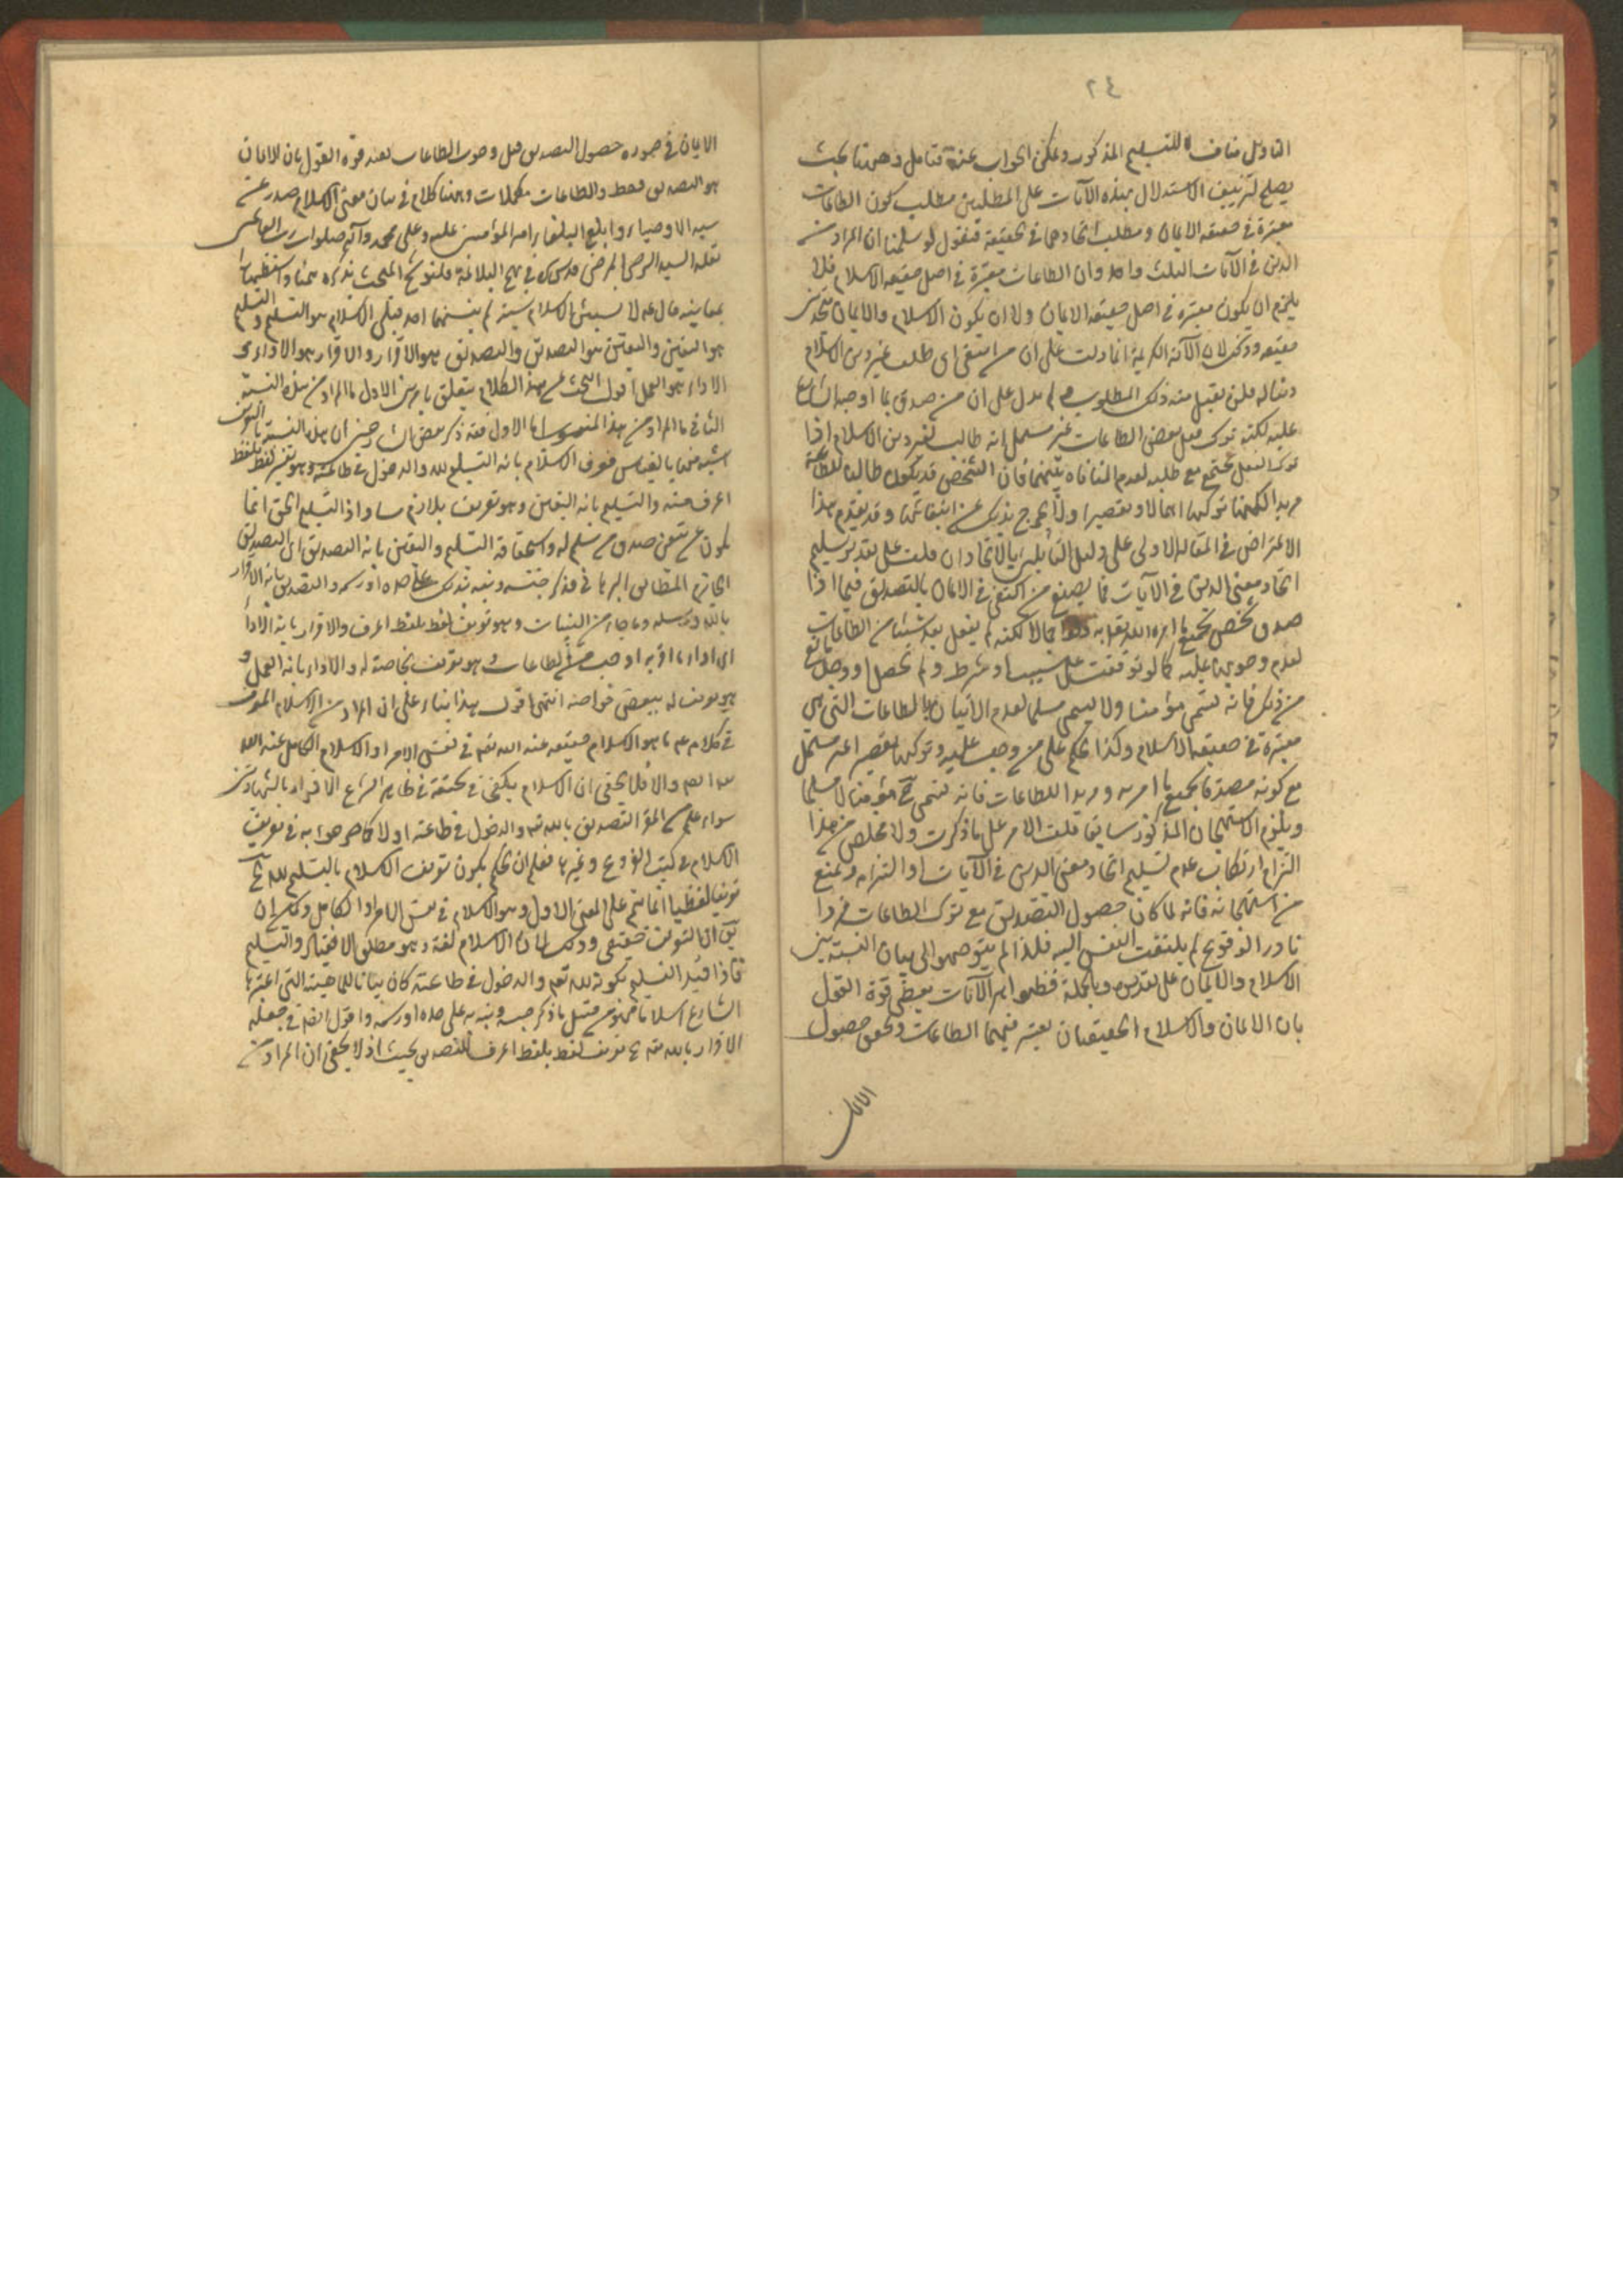 ٢٤
التأويل مناف للتسليم المذكور ويمكن الجواب عنه فتأمل وههنا بحث
يصلح لتزييف الاستدلال بهذه الآيات على المطلبين مطلب كون الطاعات
معتبرة في حقيقة الايمان ومطلب اتحادهما في الحقيقة فنقول لو سلمنا ان المراد من
الدين في الآيات الثلث واحد وان الطاعات معتبرة في اصل حقيقة الاسلام فلا
يلزم ان يكون معتبرة في اصل حقيقة الايمان ولا ان يكون الاسلام والايمان متحدين
حقيقة وذلك لان الآية الكريمة انما دلت على ان من ابتغى اى طلب غير دين الاسلام
دينا له فلن يقبل منه ذلك المطلوب ولم يدل على ان من صدق بما اوجبه الشارع
عليه لكنه ترك فعل بعض الطاعات غير مستحل انه طالب لغير دين الاسلام اذا
ترك الفعل يجتمع مع طلبه لعدم المنافاة بينهما فان الشخص قد يكون طالبا للطاعة
مريدا لكنه تركها اهمالا وتقصيرا ولا يخرج بذلك عن ابتغائها وقد تقدم هذا
الاعتراض في المقالة الاولى على دليل القائلين بالاتحاد ان قلت على تقدير تسليم
اتحاد معنى الدين في الآيات فما يصنع من اكتفى في الايمان بالتصديق فيما اذا
صدق شخص بجميع ما امره الله تعالى به اجمالا لكنه لم يفعل بعد شيئا من الطاعات
لعدم وجوبها عليه كما لو توقفت على سبب او شرط ولم يحصل او وجد مانع
من ذلك فانه يسمى مؤمنا ولا يسمى مسلما لعدم الاتيان بالطاعات التي هي
معتبرة في حقيقة الاسلام وكذا الحكم على من وجبت عليه وتركها تقصيرا غير مستحل
مع كونه مصدقا بجميع ما امر به ومريدا للطاعات فانه يسمى ح مؤمنا لا مسلما
ويلزم الاستهجان المذكور سابقا قلت الامر على ما ذكرت ولا مخلص من هذا
التزام ارتكاب عدم تسليم اتحاد معنى الدين في الآيات او التزامه ويمنع
من استهجانه فانه لما كان حصول التصديق مع ترك الطاعات فردا
نادر الوقوع لم يلتفت النفس اليه فلذا لم يتوجهوا الى بيان النسبة بين
الاسلام والايمان على تقديره وبالجملة فظواهر الآيات يعطى قوة القول
بان الايمان والاسلام الحقيقيان يعتبر فيهما الطاعات وتحقق حصول
الايمان
الايمان في صورة حصول التصديق قبل وجوب الطاعات يفيد قوة القول بان الايمان
هو التصديق فقط والطاعات مكملات وههنا كلام في بيان معنى الاسلام صدر عن
سيد الاوصياء وابلغ البلغاء امير المؤمنين عليه وعلى محمد وآله صلوات رب العالمين
نقله السيد الرضي المرضي قدس سره في نهج البلاغة فلنوشح المبحث بذكره تيمنا واستظهارا
بمعانيه قال ع لا نسبن الاسلام نسبة لم ينسبها احد قبلي الاسلام هو التسليم والتسليم
هو اليقين واليقين هو التصديق والتصديق هو الاقرار والاقرار هو الاداء و
الاداء هو العمل اقول البحث عن هذا الكلام يتعلق بامرين الاول ما المراد من هذه النسبة
الثاني ما المراد من هذا المنسوب اما الاول فقد ذكر بعض الشارحين ان هذه النسبة بالتعريف
اشبه منها بالقياس فعرف الاسلام بانه التسليم لله والدخول في طاعته وهو تفسير لفظ بلفظ
اعرف منه والتسليم بانه اليقين وهو تعريف بلازم مساو اذ التسليم الحق انما
يكون ممن تيقن صدق من سلم له واستحقاقه التسليم واليقين بانه التصديق اى التصديق
الجازم المطابق البرهاني فذكر جنسه ونبه بذلك على حده او رسمه والتصديق بانه الاقرار
بالله ورسله وما جاء من البينات وهو تعريف لفظ بلفظ اعرف والاقرار بانه الاداء
اى اداء ما اقر به وجب من الطاعات وهو تعريف بخاصة له والاداء بانه العمل و
هو تعريف له ببعض خواصه انتهى اقول هذا بناء على ان المراد من الاسلام المعرف
في كلامه ع ما هو الاسلام حقيقة عند الله تعالى في نفس الامر او الاسلام الكامل عند الله
والا فلا يخفى ان الاسلام يكفي في تحققه في ظاهر الشرع الاقرار بالشهادتين
سواء علم من المقر التصديق بالله تعالى والدخول في طاعته او لا كما صرحوا به في تعريف
الاسلام في كتب الفروع وغيرها فعلم ان الحكم بكون تعريف الاسلام بالتسليم لله الخ
تعريفا لفظيا انما يتم على المعنى الاول وهو الاسلام في نفس الامر او الكامل ويمكن ان
يقال ان التعريف حقيقي وذلك لان الاسلام لغة هو مطلق الانقياد والتسليم
فاذا قيد التسليم بكونه لله تعالى والدخول في طاعته كان بيانا للماهية التي اعتبرها
الشارع اسلاما فهو من قبيل ما ذكر جنسه ونبه به على حده او رسمه واقول ايضا في جعله
الاقرار بالله تعالى الخ تعريف لفظ بلفظ اعرف للتصديق بحيث اذ لا يخفى ان المراد من